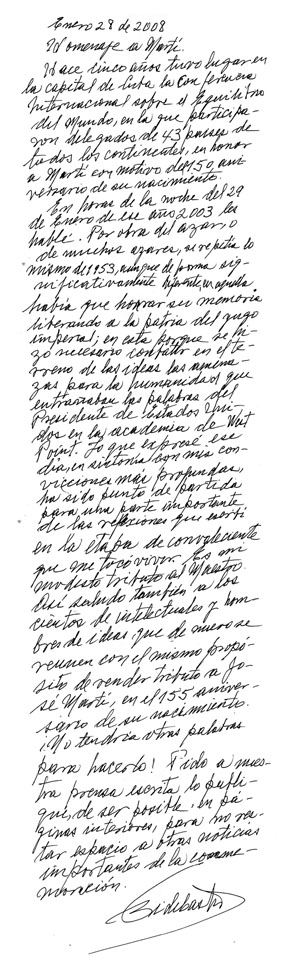 Enero 28 de 2008
Homenaje a Martí.
Hace cinco años tuvo lugar en
la capital de Cuba la Conferencia
Internacional sobre el Equilibrio
del Mundo, en la que participa-
ron delegados de 43 países de
todos los continentes, en honor
a Martí con motivo del 150 ani-
versario de su nacimiento.
En horas de la noche del 29
de Enero de ese año 2003 les
hablé. Por obra del azar, o
de muchos azares, se repetía lo
mismo de 1953, aunque de forma sig-
nificativamente diferente, en aquella
había que honrar su memoria
liberando a la patria del yugo
imperial; en esta porque se hi-
zo necesario combatir en el te-
rreno de las ideas las amena-
zas para la humanidad que
entrañaban las palabras del
Presidente de Estados Uni-
dos en la academia de West
Point. Lo que expresé ese
día, en sintonía con mis con-
vicciones más profundas,
ha sido punto de partida
para una parte importante
de las reflexiones que escribí
en la etapa de convaleciente
que me tocó vivir. Es mi
modesto tributo al Maestro.
Así saludo también a los
cientos de intelectuales y hom-
bres de ideas que de nuevo se
reúnen con el mismo propó-
sito de rendir tributo a Jo-
sé Martí, en el 155 aniver-
sario de su nacimiento.
¡No tendría otras palabras
para hacerlo! Pido a nues-
tra prensa escrita lo publi-
que, de ser posible, en pá-
ginas interiores, para no res-
tar espacio a otras noticias
importantes de la conme-
moración.
Fidel Castro